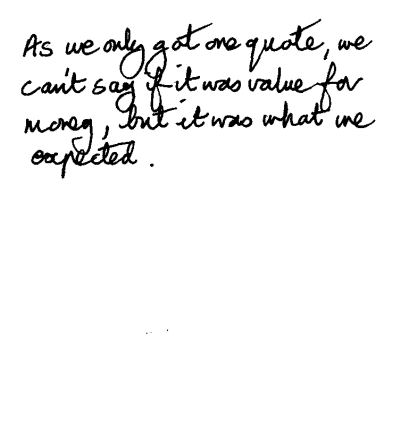 As we only got one quote, we
can't say if it was value for
money, but it was what we
expected.